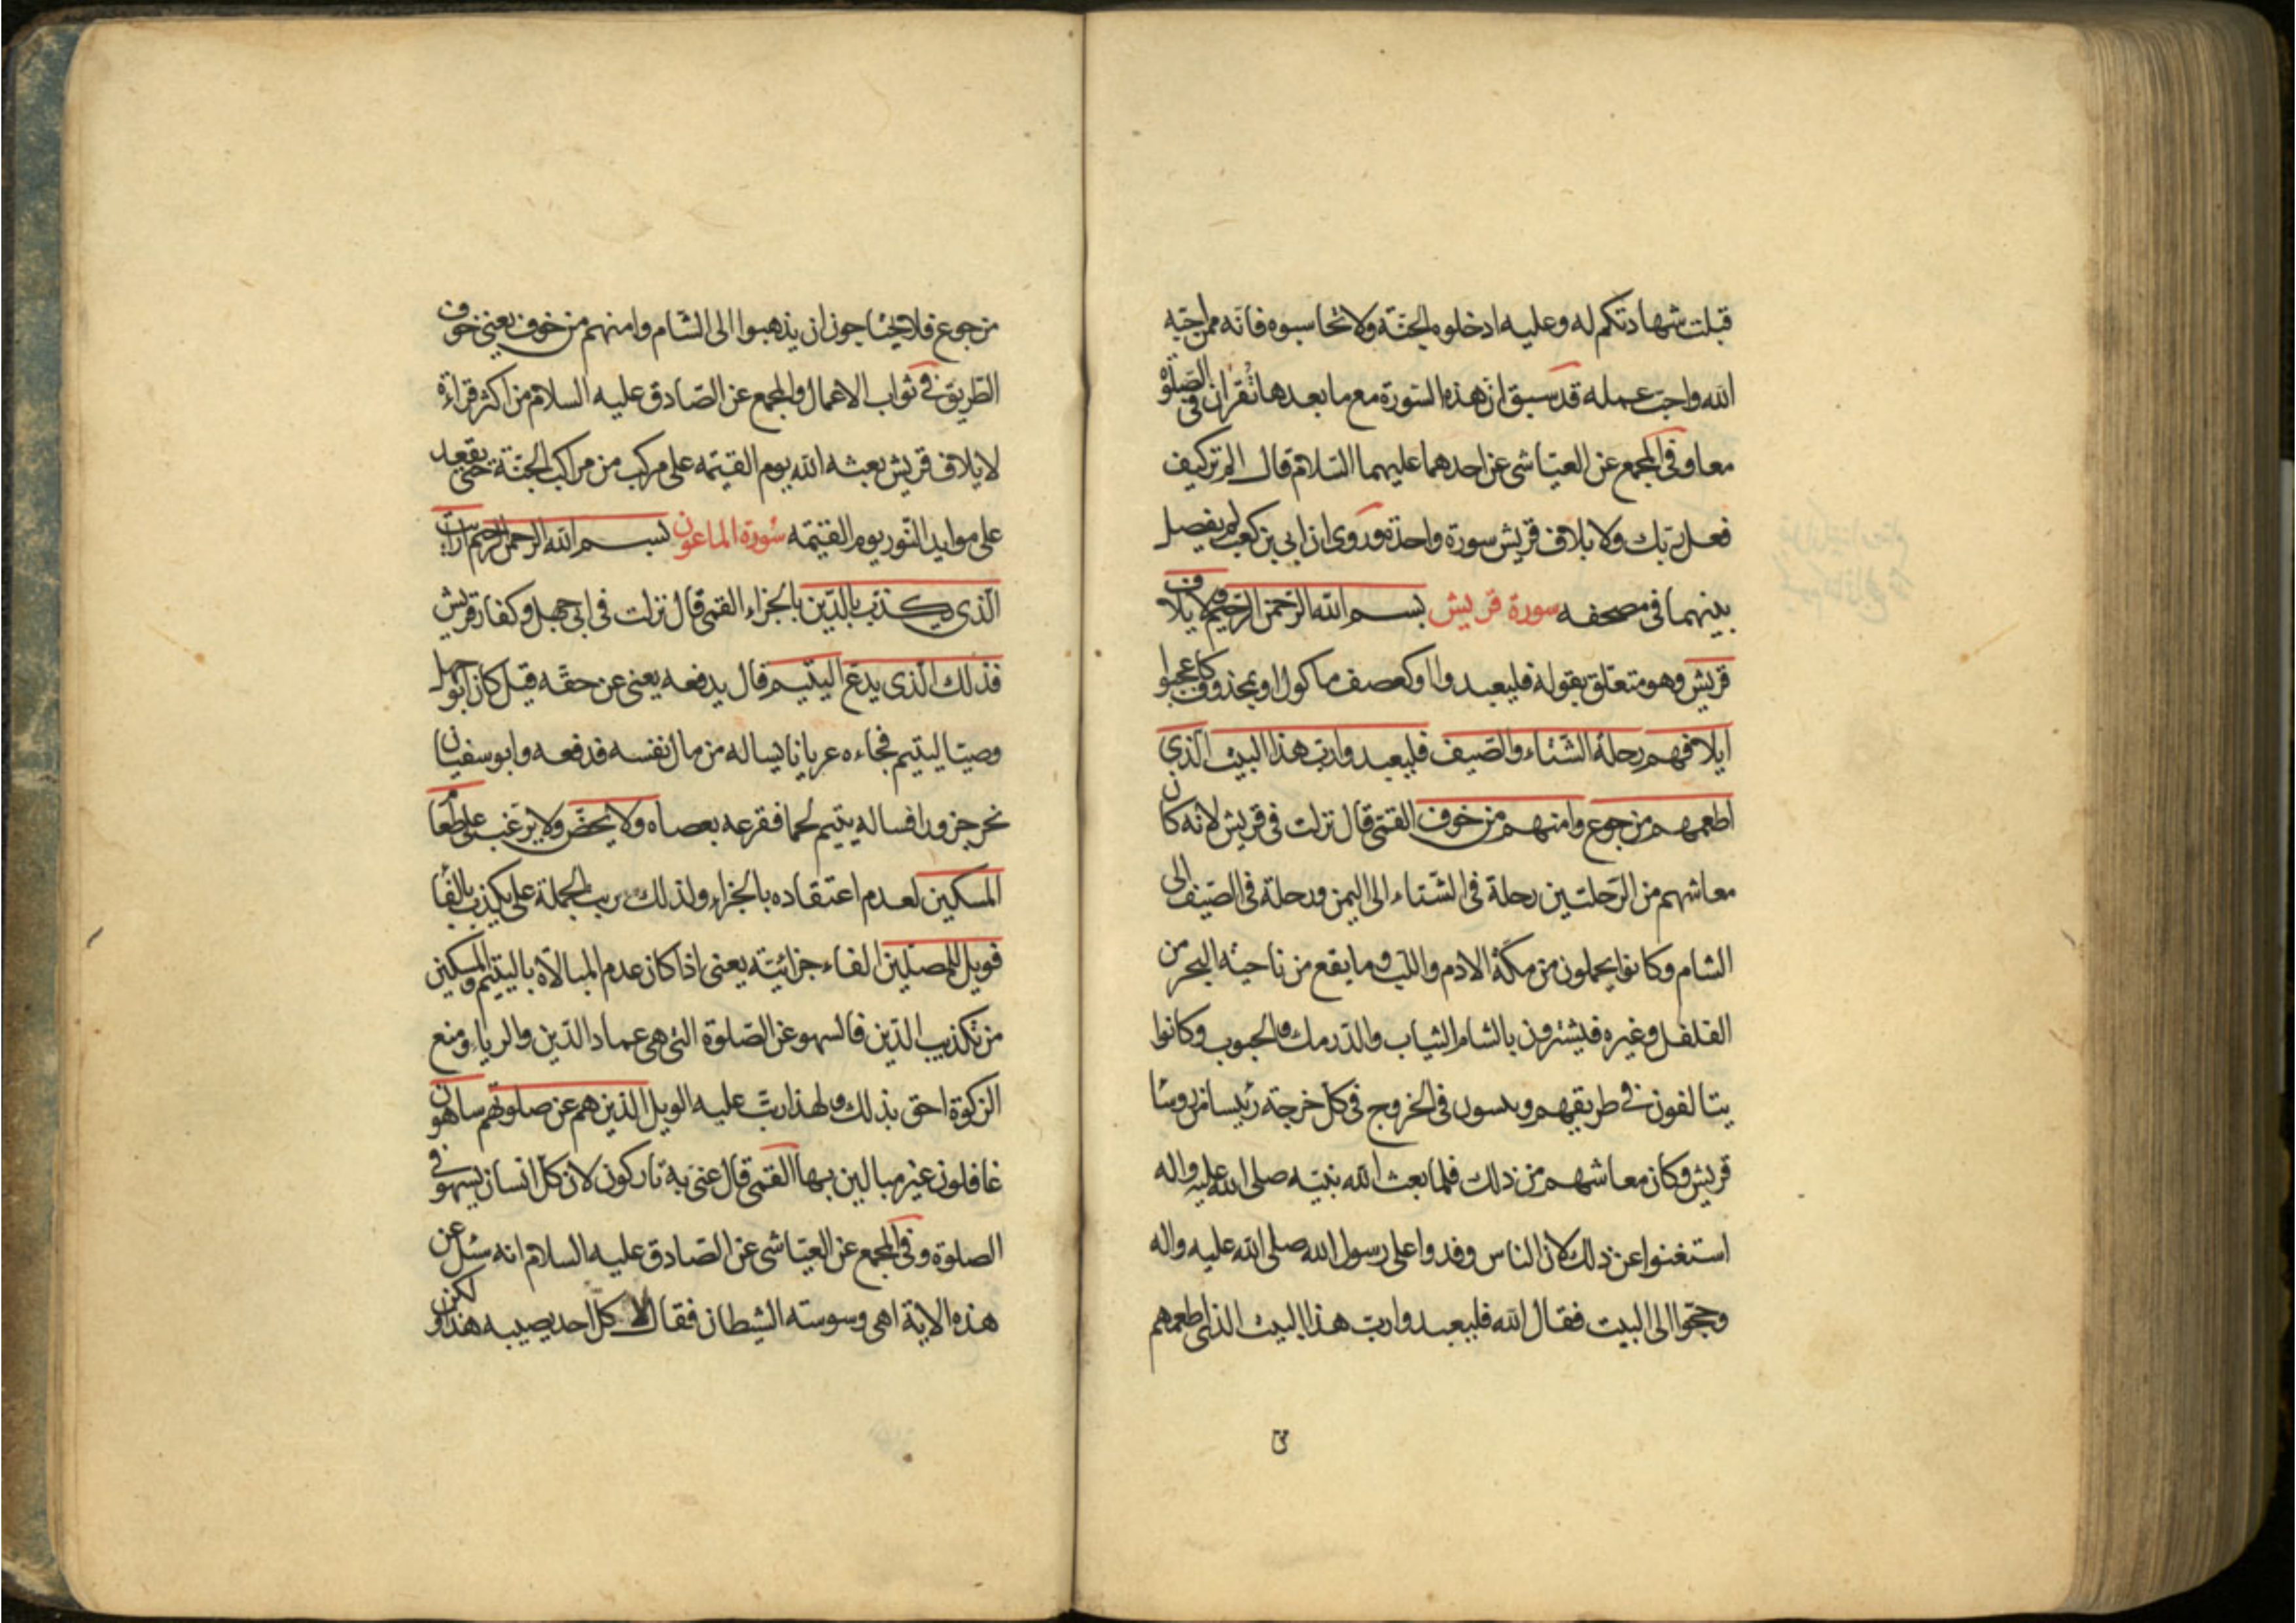 قبلت شهادتكم له وعليه ادخلوه الجنّة ولا تحاسبوه فانّه ممن احبّه
الله واحبّ عمله قد سبق انّ هذه السّورة مع ما بعدها تُقرأن فى الصّلوة
معا وفى المجمع عن العيّاشى عن احدهما عليهما السّلام قال الم تر كيف
فعل ربّك ولايلاف قريش سورة واحدة وروى ان ابى بن كعب لم يفصل
بينهما فى مصحفه سورة قريش بسم الله الرّحمن الرّحيم لايلاف
قريش وهو متعلّق بقوله فليعبدوا او كعصف ماكول او بمحذوف كاعجبوا
ايلافهم رحلة الشّتاء والصّيف فليعبدوا ربّ هذا البيت الّذى
اطعمهم من جوع وامنهم من خوف القمّى قال نزلت فى قريش لانّه كان
معاشهم من الرّحلتين رحلة فى الشّتاء الى اليمن ورحلة فى الصّيف الى
الشام وكانوا يحملون من مكّة الادم واللب وما يقع من ناحية البحر من
الفلفل وغيره فيشترون بالشام الثياب والدّرمك والحبوب وكانوا
يتالفون فى طريقهم و فى الخروج فى كلّ خرجة رئيسا من روسا
قريش وكان معاشهم من ذلك فلمّا بعث الله نبيّه صلى الله عليه واله
استغنوا عن ذلك لان الناس وفدوا على رسول الله صلى الله عليه واله
وحجّوا الى البيت فقال الله فليعبدوا ربّ هذا البيت الذى اطعمهم
من جوع فلا يحتاجون ان يذهبوا الى الشّام وامنهم من خوف يعنى خوف
الطّريق فى ثواب الاعمال والمجمع عن الصّادق عليه السلام من اكثر قراءة
لايلاف قريش بعثه الله يوم القيٰمه على مركب من مراكب الجنّة حتى يقعد
على موايد النّور يوم القيٰمه سورة الماعون بسم الله الرحمن الرحيم ارايت
الّذى يكذب بالدّين بالجزاء القمى قال نزلت فى ابى جهل وكفار قريش
فذلك الّذى يدعّ اليتيم قال يدفعه يعنى عن حقّه قيل كان ابو جهل
وصيّا ليتيم فجاءه عريانا يساله من مال نفسه فدفعه وابو سفيان
نحر جزورا فساله يتيم لحما فقرعه بعصاه ولا يحضّ ولا يرغب على طعام
المسكين لعدم اعتقاده بالجزاء ولذلك رتب الجملة على يكذب بالفا
فويل للمصلّين الفاء جزائيّة يعنى اذا كان عدم المبالاة باليتيم والمسكين
من تكذيب الدّين فالسهو عن الصّلوة التى هى عماد الدّين والرياء ومنع
الزكوة احق بذلك ولهذا رتّب عليه الويل الذين هم عن صلوتهم ساهون
غافلون غير مبالين بها القمى قال عنى به تاركون لان كلّ انسان يسهو فى
الصلوة وفى المجمع عن العيّاشى عن الصّادق عليه السلام انه سئل عن
هذه الاية اهى وسوسته الشيطان فقال لا كل احد يصيبه هذا ولكن